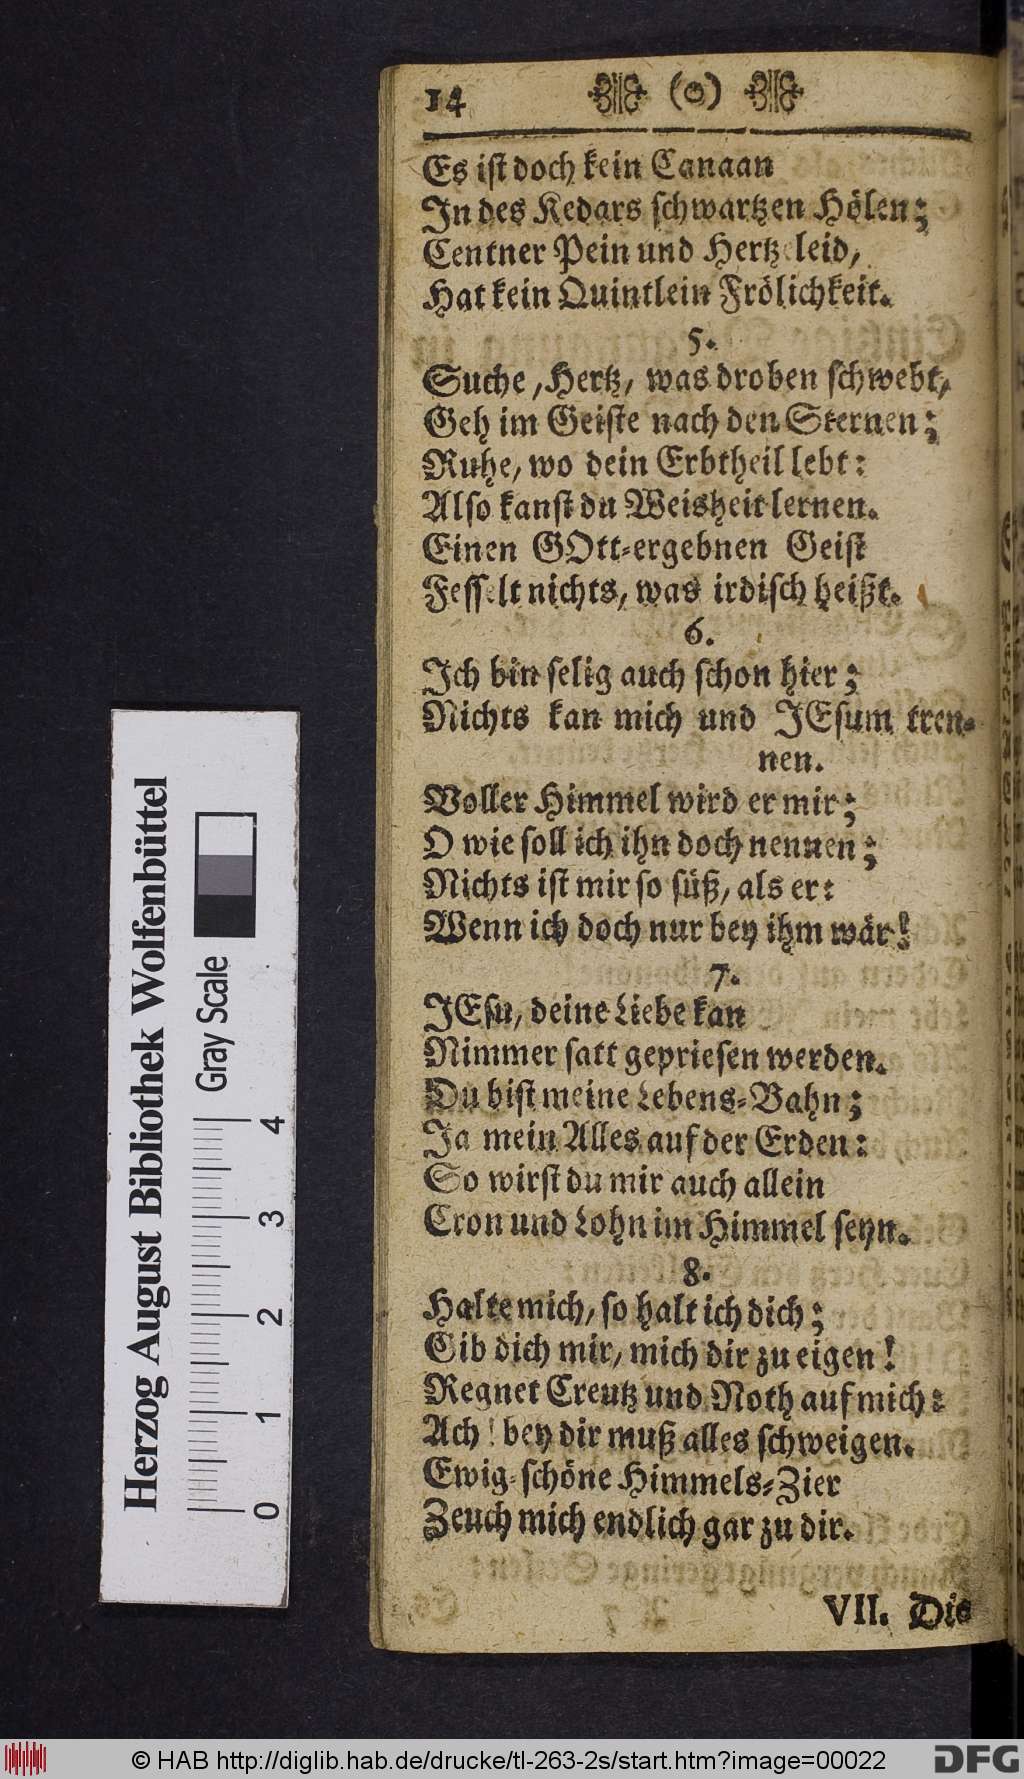 14 (o)
Es ist doch kein Canaan
In des Kedars schwartzen Hölen;
Centner Pein und Hertzeleid,
Hat kein Quintlein Frölichkeit.
5.
Suche, Hertz, was droben schwebt,
Geh im Geiste nach den Sternen;
Ruhe, wo dein Erbtheil lebt:
Also kanst du Weisheit lernen.
Einen GOtt-ergebnen Geist
Fesselt nichts, was irdisch heißt.
6.
Ich bin selig auch schon hier;
Nichts kan mich und JEsum tren-
nen.
Voller Himmel wird er mir;
O wie soll ich ihn doch nennen;
Nichts ist mir so süß, als er:
Wenn ich doch nur bey ihm wär!
7.
JEsu, deine Liebe kan
Nimmer satt gepriesen werden.
Du bist meine Lebens-Bahn;
Ja mein Alles auf der Erden:
So wirst du mir auch allein
Cron und Lohn im Himmel seyn.
8.
Halte mich, so halt ich dich;
Gib dich mir, mich dir zu eigen!
Regnet Creutz und Noth auf mich:
Ach! bey dir muß alles schweigen.
Ewig-schöne Himmels-Zier
Zeuch mich endlich gar zu dir.
VII. Die
Herzog August Bibliothek Wolfenbüttel
Gray Scale
0 1 2 3 4
© HAB http://diglib.hab.de/drucke/tl-263-2s/start.htm?image=00022
DFG